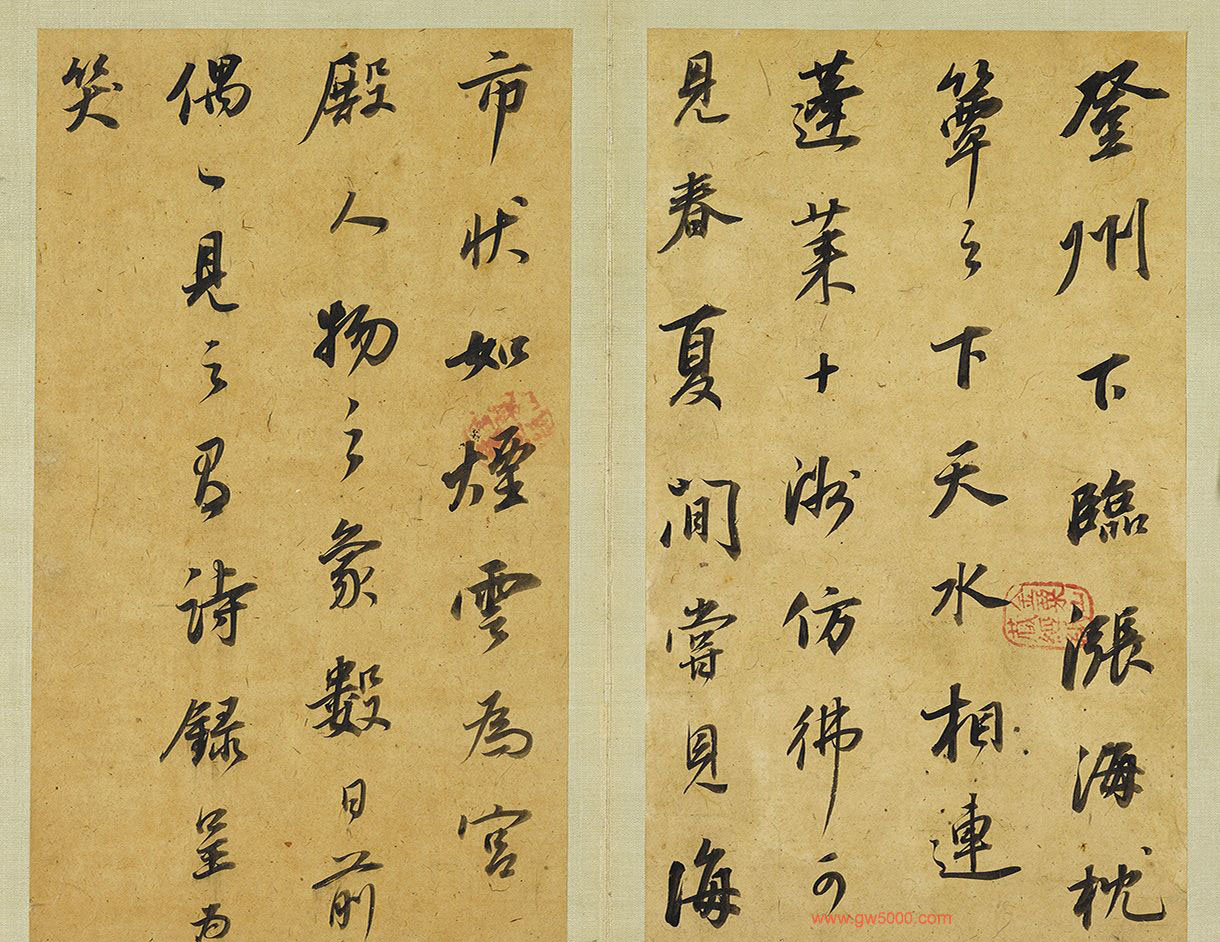 登州下臨漲海枕
簟之下天水相連
蓬萊十洲仿彿可
見春夏間嘗見海
市状如煙雲為宮
殿人物之象數日前
偶一見之有詩録呈為
笑
www.gw5000.com